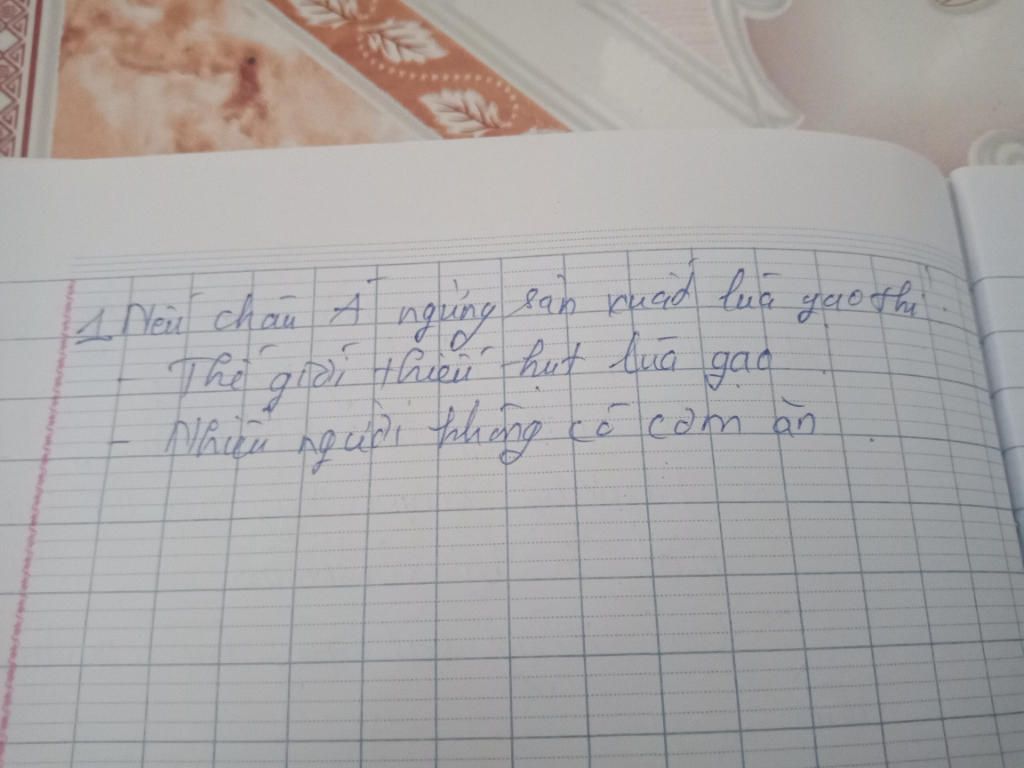 1. Nếu châu Á ngừng sản xuất lúa gạo thì
- Thế giới thiếu hụt lúa gạo
- Nhiều người không có cơm ăn.